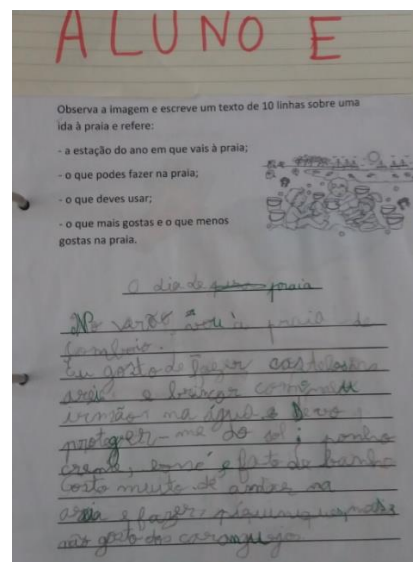 ALUNO E
Observa a imagem e escreve um texto de 10 linhas sobre uma
ida à praia e refere:
- a estação do ano em que vais à praia;
- o que podes fazer na praia;
- o que deves usar;
- o que mais gostas e o que menos
gostas na praia.
O dia de praia
No vou à praia de
comboio.
Eu gosto de fazer castelos na
areia e brincar com
irmãos na água. Devo
proteger-me do sol; ponho
creme, boné e fato de banho
Gosto muito de na
areia e fazer
não gosto dos caranguejos.